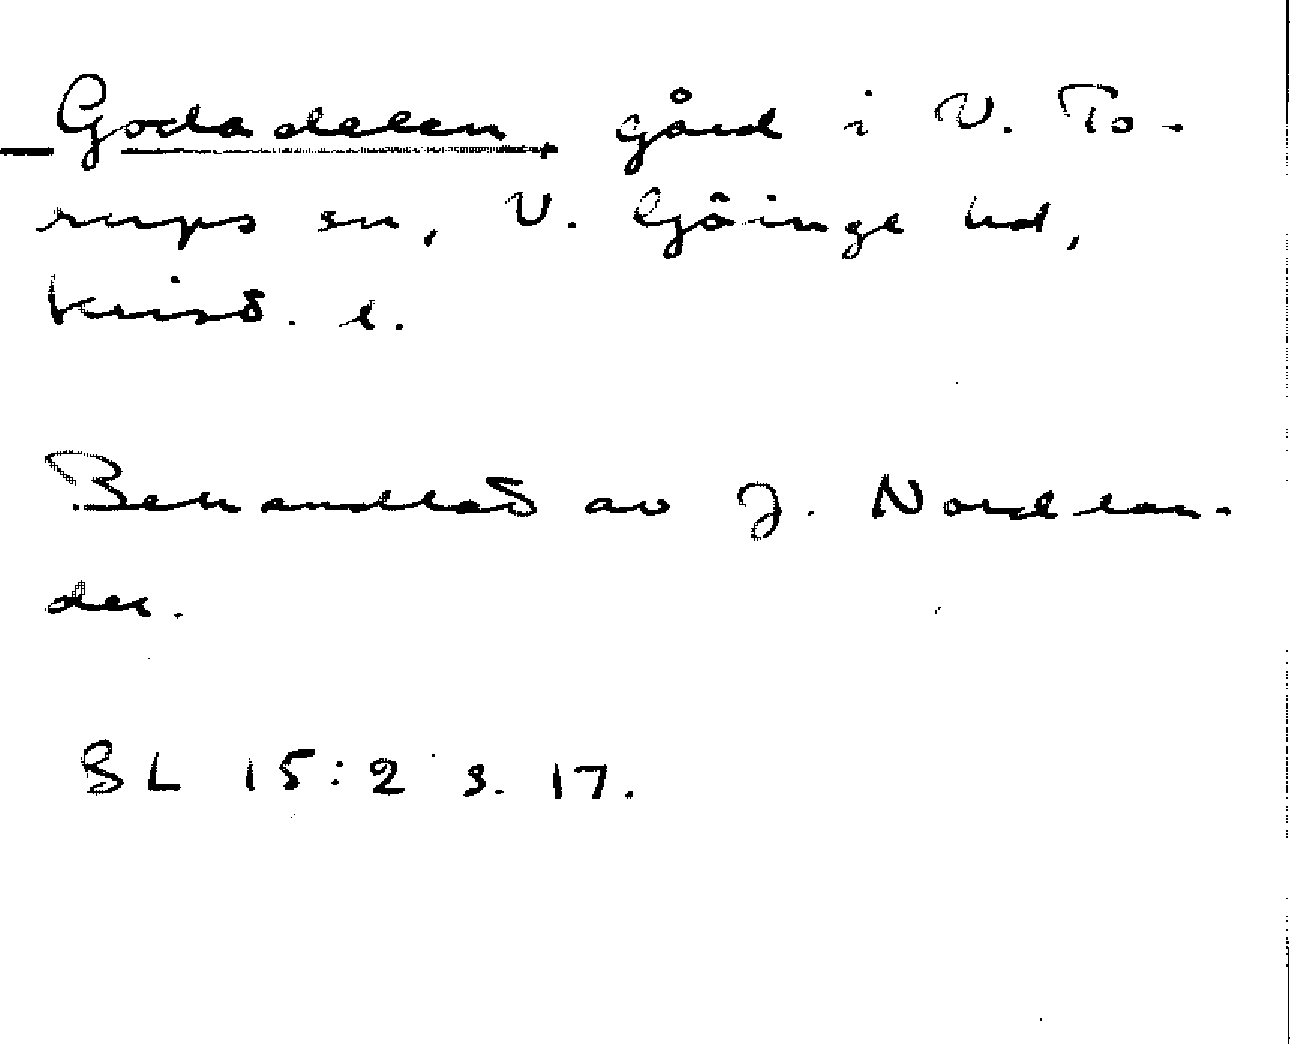 Godadelen, gård i V. To-
rups sn, V. Göinge hd,
Krist. l.
Behandlat av J. Nordlan-
der.
SL 15:2 s. 17.